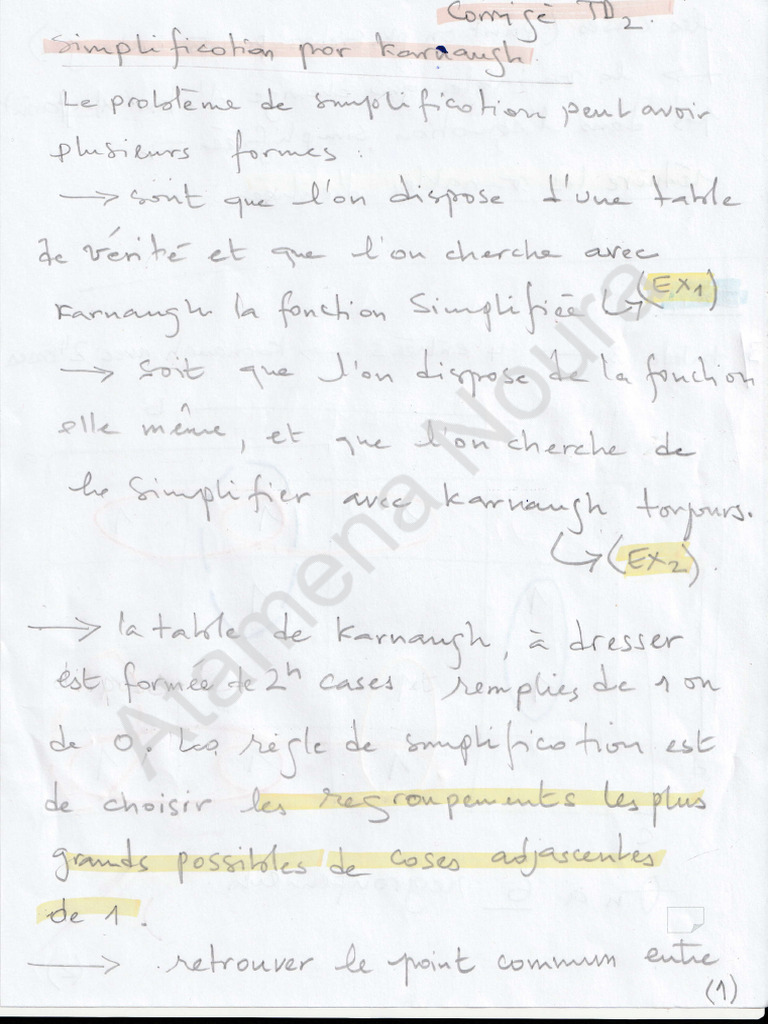 Corrigé TD2.
Simplification par Karnaugh.
Le problème de simplification peut avoir
plusieurs formes :
→ soit que l'on dispose d'une table
de vérité et que l'on cherche avec
Karnaugh la fonction Simplifiée ↪ (EX1)
→ soit que l'on dispose de la fonction
elle même, et que l'on cherche de
le Simplifier avec Karnaugh toujours.
↪ (EX2)
→ la table de Karnaugh, à dresser
est formée de 2^n cases remplies de 1 ou
de 0. La règle de simplification est
de choisir les regroupements les plus
grands possibles de cases adjascentes
de 1.
→ retrouver le point commun entre
(1)
Atamena Noura